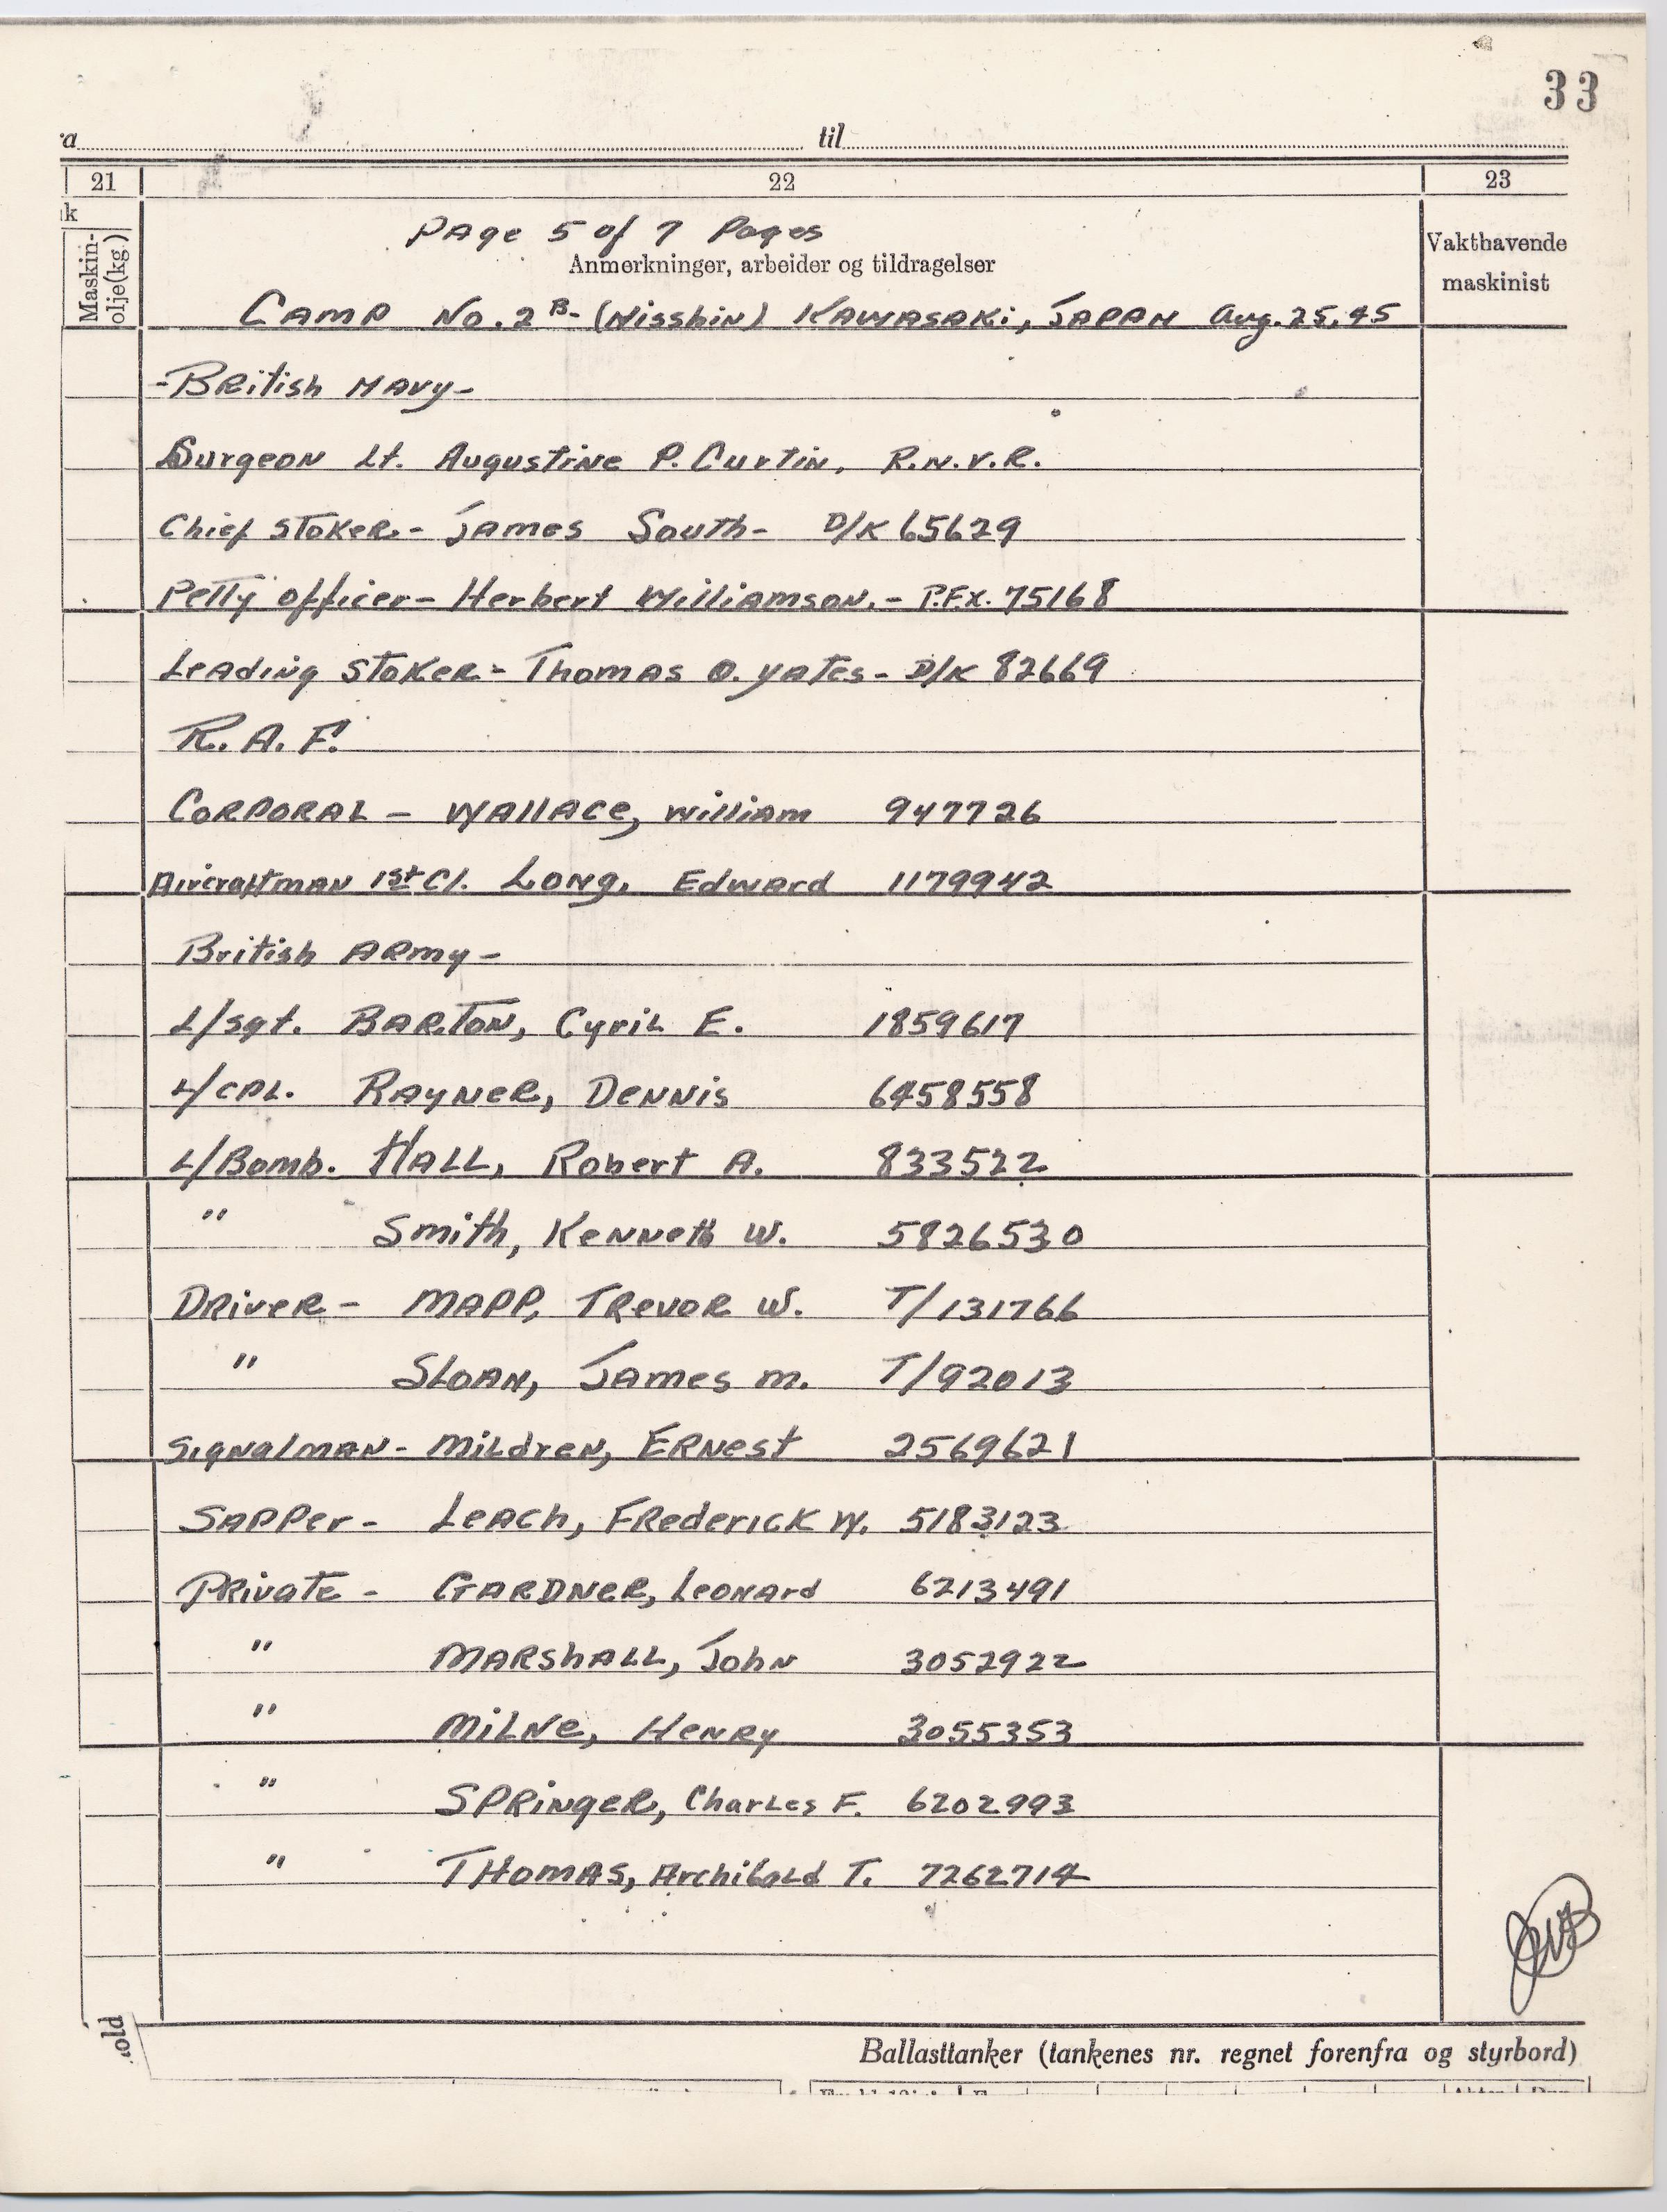 33
til
21 22 23
Page 5 of 7 Pages
Maskin-
olje(kg.)
Anmerkninger, arbeider og tildragelser
Vakthavende
maskinist
Camp No. 2B- (Nisshin) Kawasaki, Japan Aug. 25, 45
- British Navy -
Surgeon Lt. Augustine P. Curtin, R.N.V.R.
Chief Stoker. - James South - D/K 65629
Petty Officer - Herbert Williamson. - P.F.X. 75168
Leading Stoker - Thomas O. Yates - D/K 82669
R. A. F.
Corporal - Wallace, William 947726
Aircraftman 1st Cl. Long, Edward 1179942
British Army -
L/Sgt. Barton, Cyril E. 1859617
L/Cpl. Rayner, Dennis 6458558
L/Bomb. Hall, Robert A. 833522
" Smith, Kenneth W. 5826530
Driver - Mapp, Trevor W. T/131766
" Sloan, James M. T/92013
Signalman - Mildren, Ernest 2569621
Sapper - Leach, Frederick W. 5183123
Private - Gardner, Leonard 6213491
" Marshall, John 3052922
" Milne, Henry 3055353
" Springer, Charles F. 6202993
" Thomas, Archibald T. 7262714
Ballasttanker (tankenes nr. regnet forenfra og styrbord)